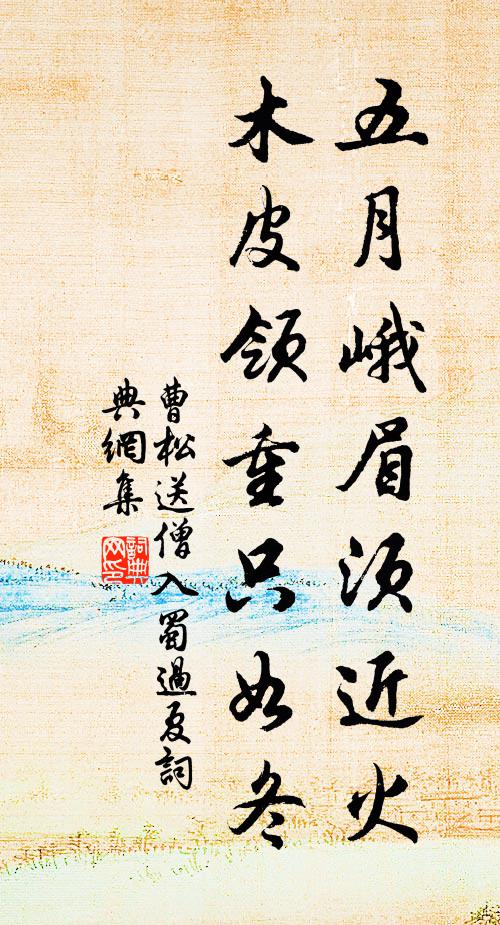 五月峨眉須近火
木皮領重只如冬
曹松送僧入蜀過夏詞
典網集
詞典
网印